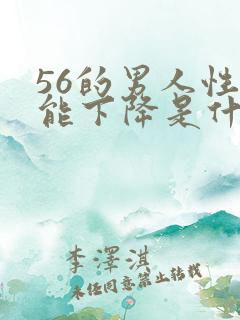 56的男人性
能下降是什
李澤淇
未经同意禁止转载